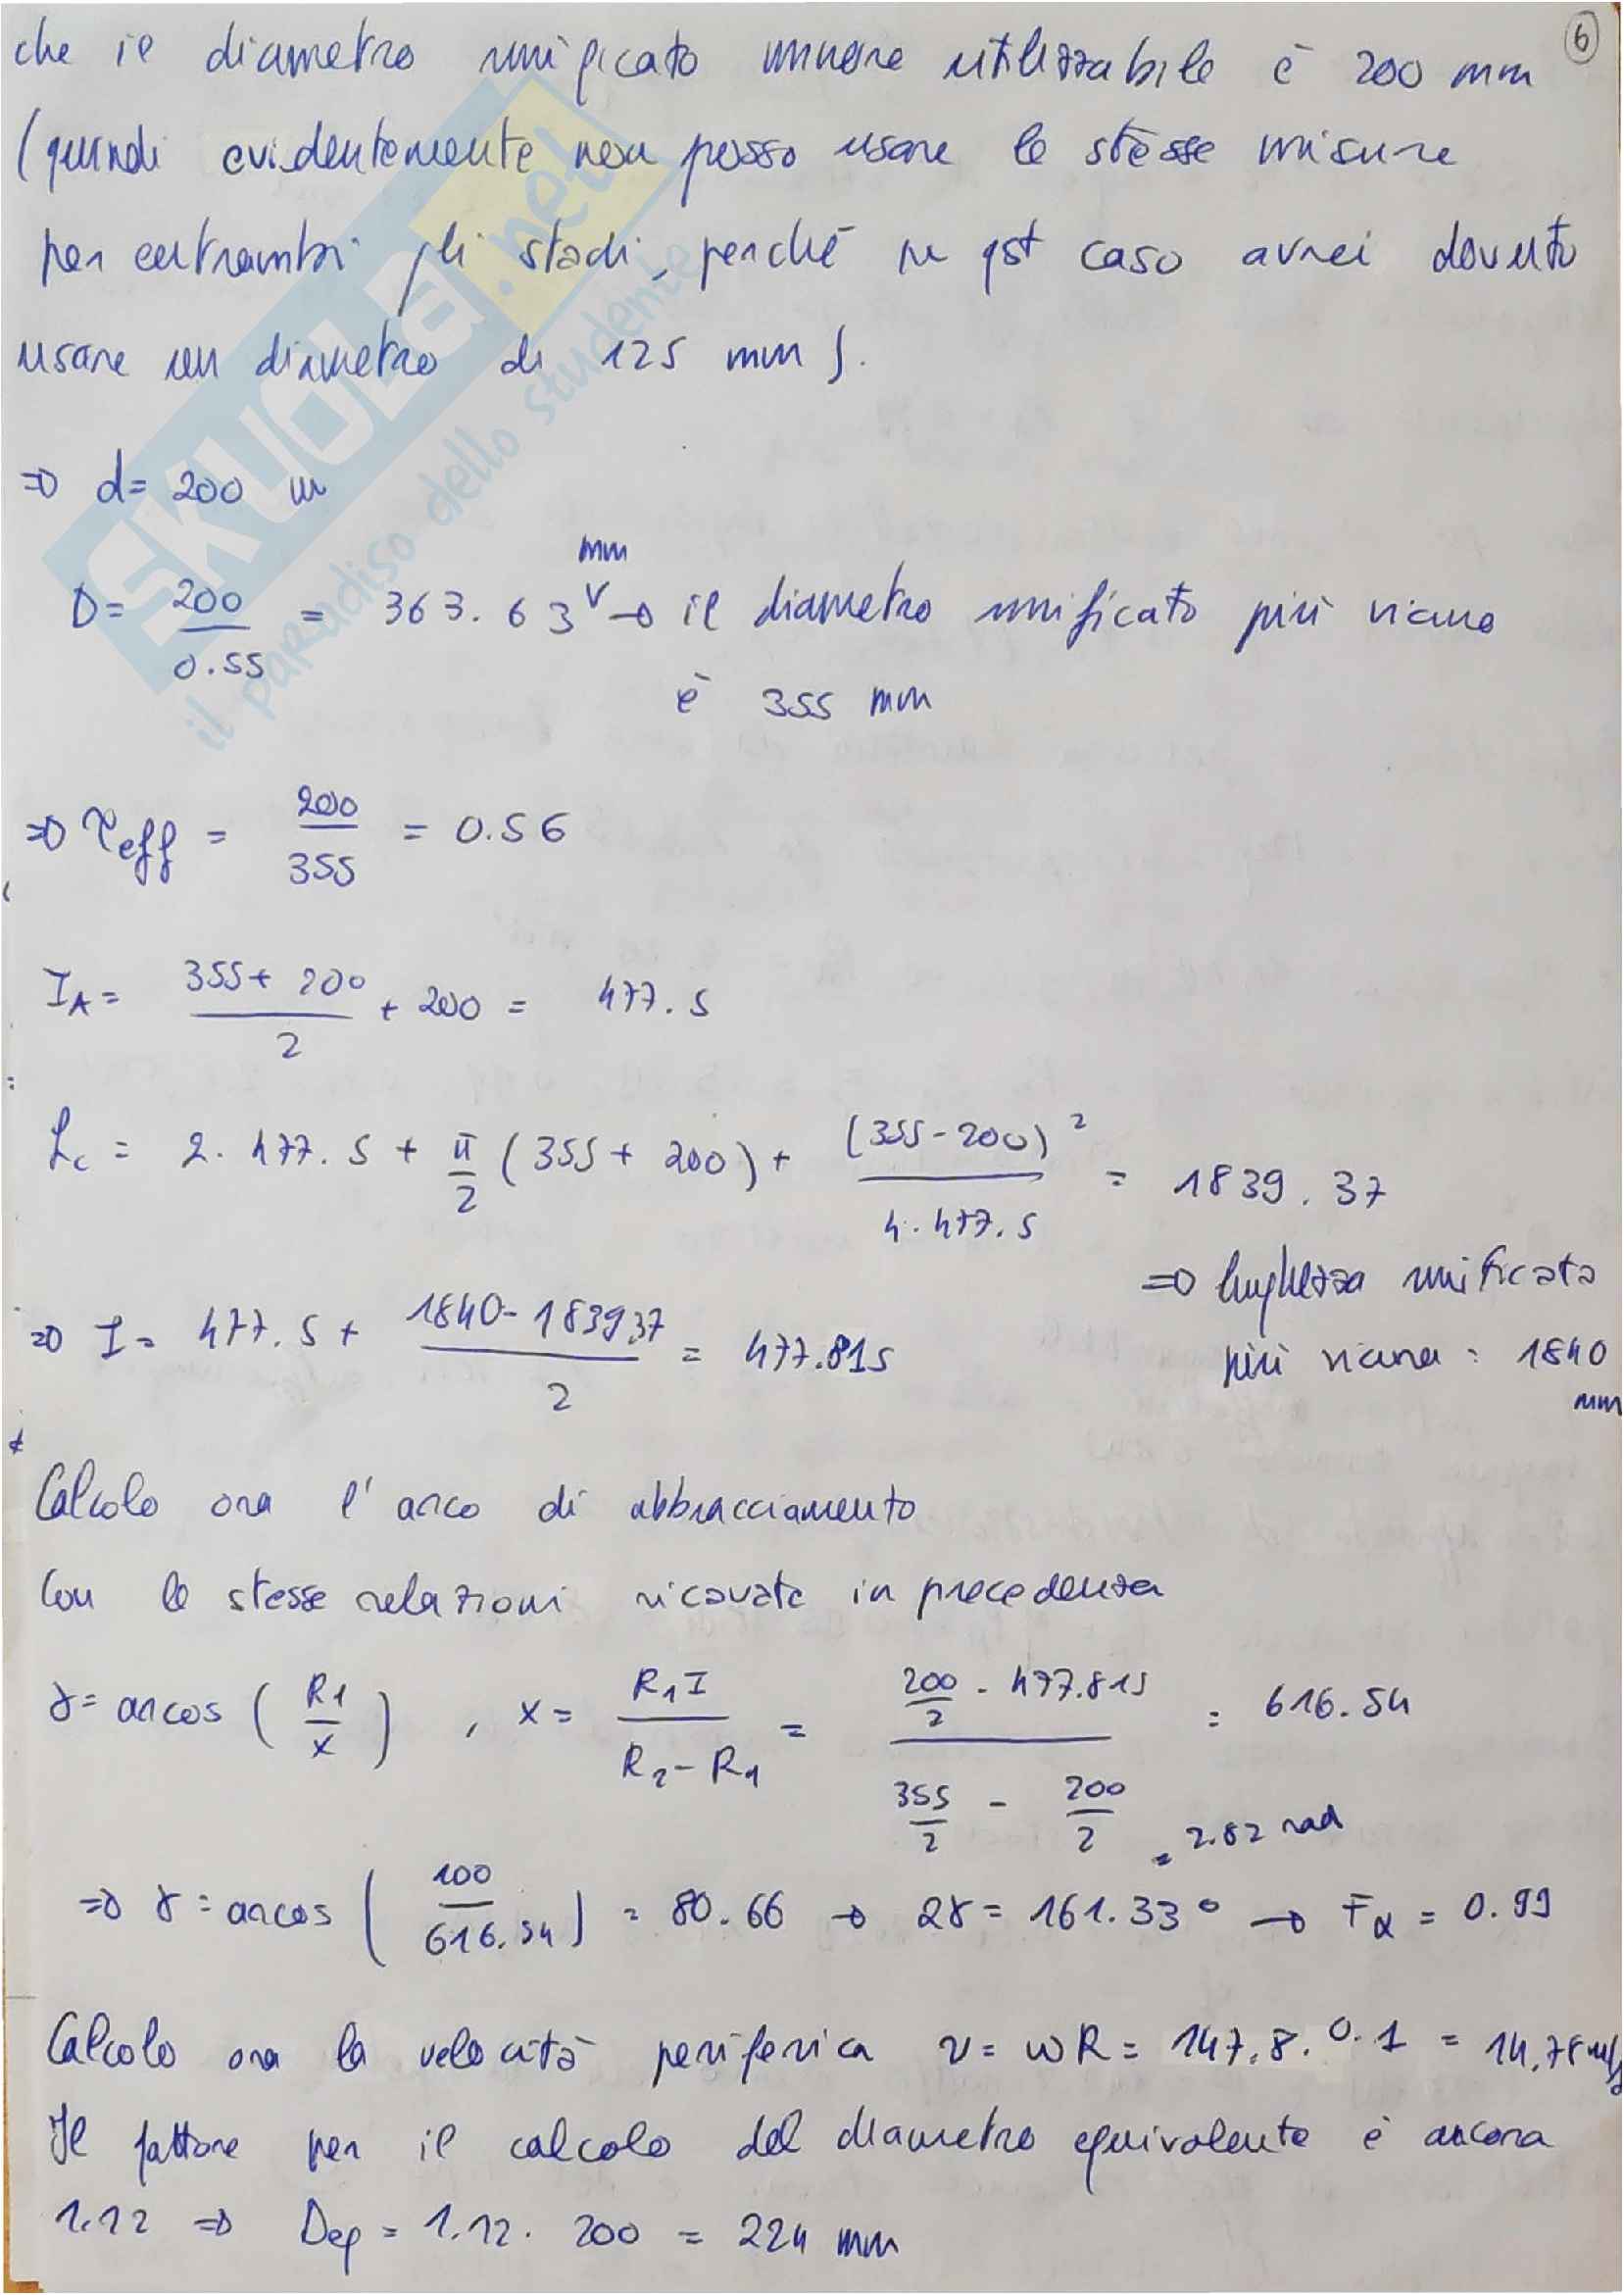 6
che il diametro unificato minore utilizzabile è 200 mm
(quindi evidentemente non posso usare le stesse misure
per entrambi gli stadi, perché in qst caso avrei dovuto
usare un diametro di 125 mm).
SKUOLA.net
il paradiso dello studente
⇒ d= 200 m
D= 200/0.55 = 363.63 mm → il diametro unificato più vicino
è 355 mm
⇒ τeff = 200/355 = 0.56
IA= (355+ 200)/2 + 200 = 477.5
Lc = 2. 477.5 + π/2 (355+ 200) + (355-200)²/(4. 477.5) = 1839.37
⇒ lunghezza unificata
più vicina: 1840 mm
⇒ I= 477.5+ (1840-1839,37)/2 = 477.815
Calcolo ora l'arco di abbracciamento
Con le stesse relazioni ricavate in precedenza
γ= arcos (R1/x) , x= R1I/(R2-R1) = (200/2 . 477.815)/(355/2 - 200/2) = 616.54
⇒ γ= arcos (100/616.54) = 80.66 → 2γ= 161.33° = 2.82 rad → Fα = 0.99
Calcolo ora la velocità periferica v= ωR= 147,8. 0.1 = 14,78 m/s
Il fattore per il calcolo del diametro equivalente è ancora
1.12 ⇒ Deq= 1.12. 200 = 224 mm